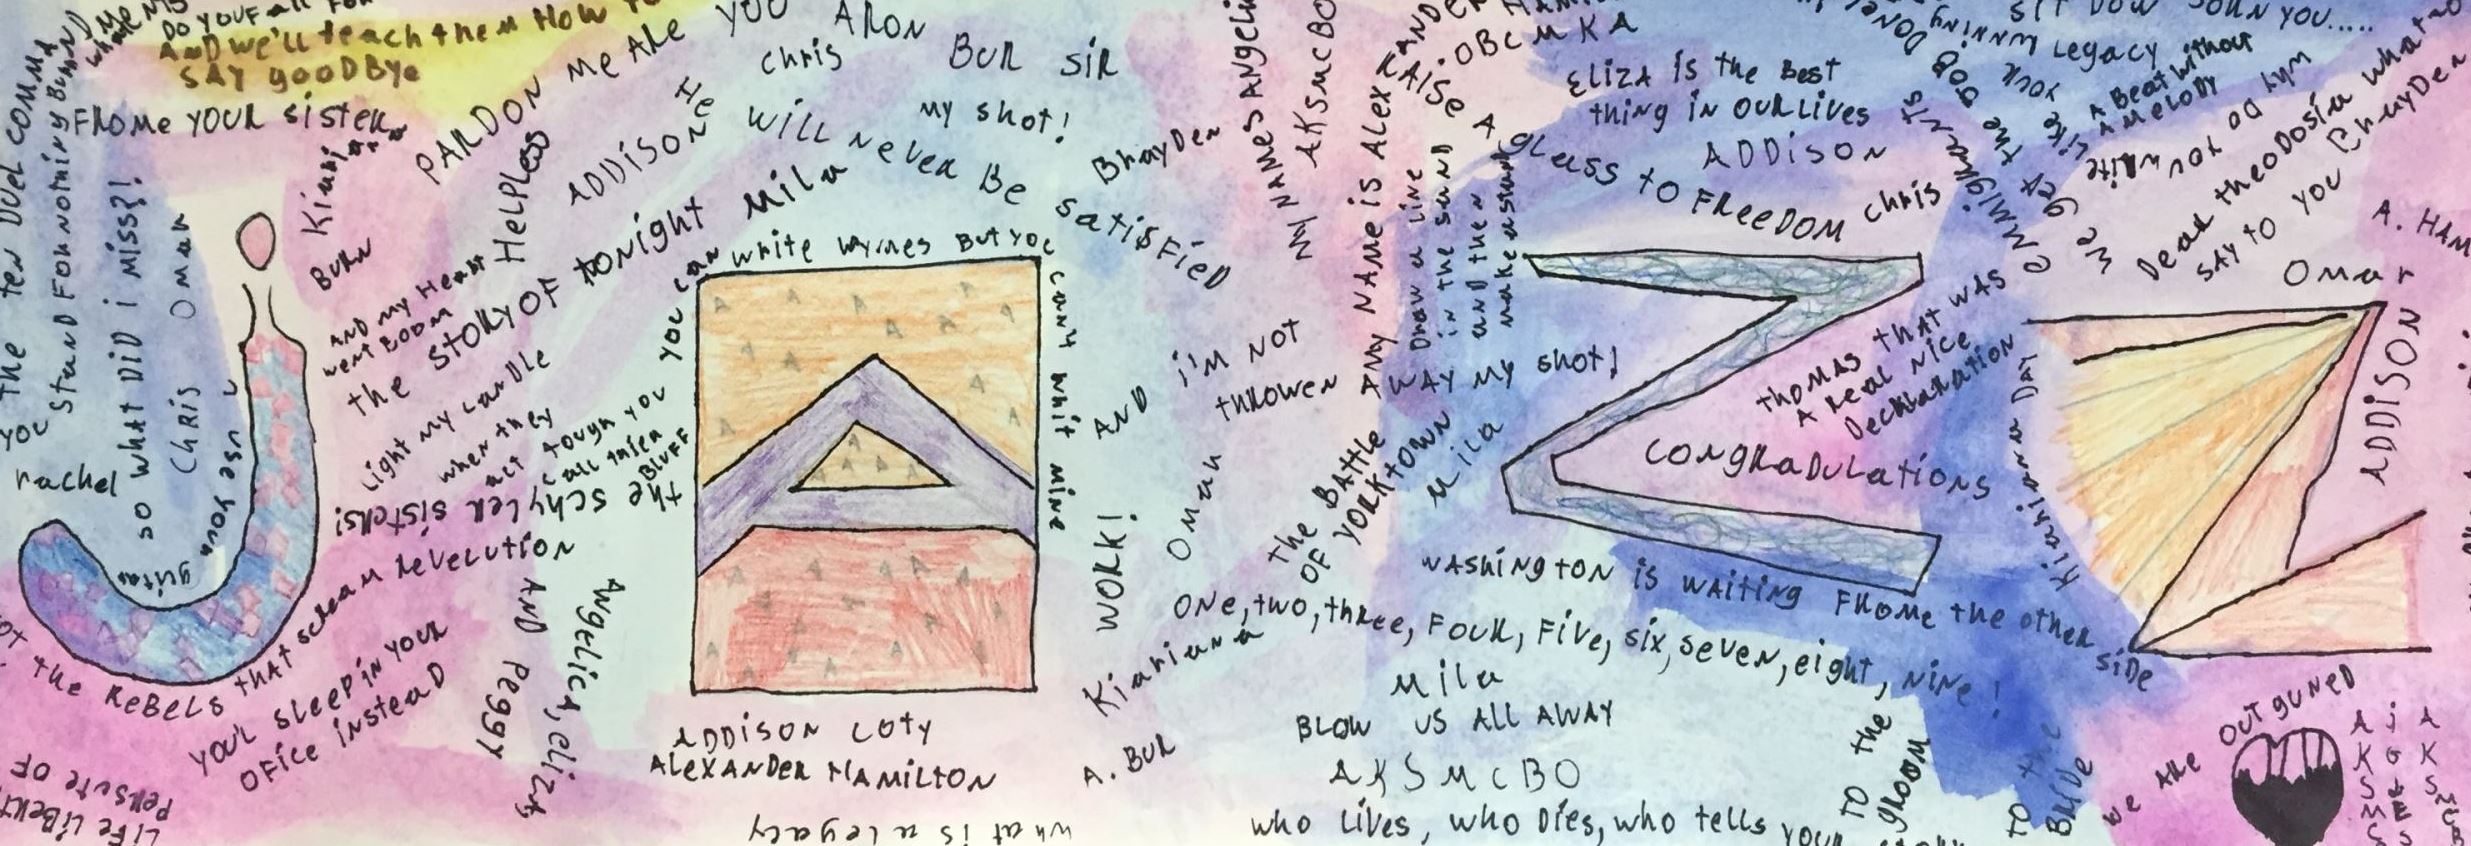 DO YOU
AND we'll teach them How to
SAY gooDBye
FROMe YOUR sister
Kiahiana
BURN
the ten Duel comm
STAND FOR nothing Burr
so what DiD i miss?!
CHRiS Omar
YOU
rachel
use your
guitar
PARDON Me ARe YOU ARON
BUR SiR
Chris
He
will never Be satisfieD
my shot!
ADDISON
HeLPless
Mila
BhayDen
AND my Heart
went BOOM
the stoRy OF tonight
Light my canDle
when they
act tough you
call their
the BluFF
the schyler sisters!
the ReBeLs that scream revelution
AND Peggy
Angelica, eliza
you'l sleep in your
OFice insteaD
LiFe LiBert
Persute OF
you can write wymes But you cant whit mine
ADDISON Loty
ALEXANDER HAMiLTON
what is a legacy
my NAMes ANGeli
AKSMCBO
Amy NAMe is ALex
OBCMKA
RAise A glass to FReeDOM
Draw a line
in the sand
and then
make a stand
eliza is the Best
thing in OUR Lives
ADDiSON
Chris
AND i'm NOT
thROwen
WAY my shot!
Mila
Omar
the BAttle
OF YORKTOWN
WORK!
Kiahiana
A. BUR
thOMAS that was
A ReaL Nice
DecklaRation
congRADULations
WAShington is WAiting FROMe the other siDe
ONe, two, three, FOUR, Five, six, seven, eight, Nine!
Mila
BLOW US ALL AWAY
AKSMCBO
who Lives, who Dies, who tells your
TO the
gROOM
TO the
BRiDe
sit DOW JOHN YOU.....
Legacy
A Beat without
A MeLODy
we get the job Done
Like
Why DO YOU write
DeaR theoDosia what to
say to YOU
BhayDen
A. HAM
Omar
ADDiSON
we ARe OUtguned
A
K
S
M
C
A
K
S
M
C
B